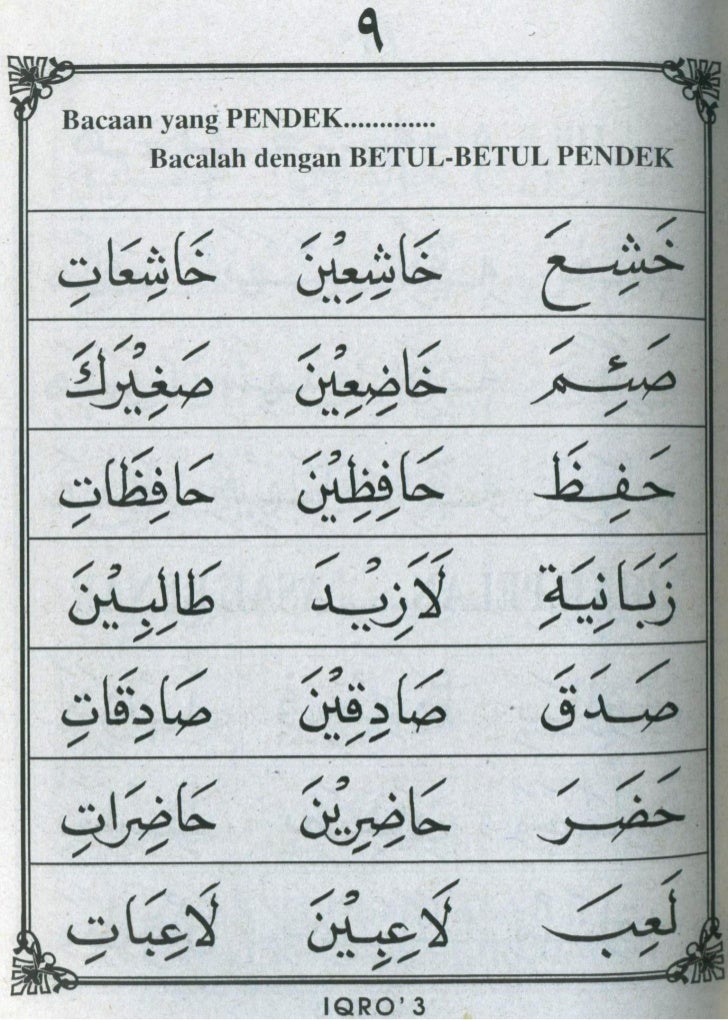 ٩
Bacaan yang PENDEK.............
Bacalah dengan BETUL-BETUL PENDEK
خَشِعَ خَاشِعِيْنَ خَاشِعَاتِ
صَئِمَ خَاضِعِيْنَ صَغِيْرَكَ
حَفِظَ حَافِظِيْنَ حَافِظَاتِ
زَبَانِيَةِ لَازِيْدَ طَالِبِيْنَ
صَدَقَ صَادِقِيْنَ صَادِقَاتِ
حَضَرَ حَاضِرِيْنَ حَاضِرَاتِ
لَعِبَ لَاعِبِيْنَ لَاعِبَاتِ
IQRO' 3